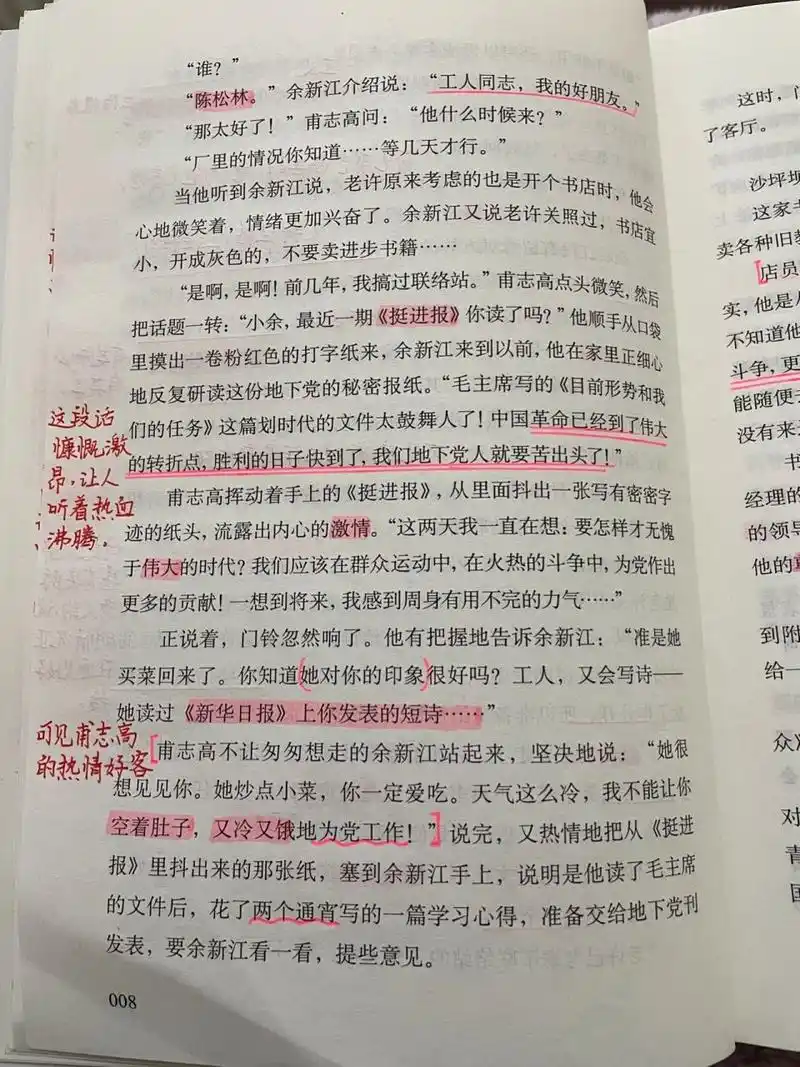 “谁？”
“陈松林。”余新江介绍说：“工人同志，我的好朋友。”
“那太好了！”甫志高问：“他什么时候来？”
“厂里的情况你知道……等几天才行。”
当他听到余新江说，老许原来考虑的也是开个书店时，他会
心地微笑着，情绪更加兴奋了。余新江又说老许关照过，书店宜
小，开成灰色的，不要卖进步书籍……
“是啊，是啊！前几年，我搞过联络站。”甫志高点头微笑，然后
把话题一转：“小余，最近一期《挺进报》你读了吗？”他顺手从口袋
里摸出一卷粉红色的打字纸来，余新江来到以前，他在家里正细心
地反复研读这份地下党的秘密报纸。“毛主席写的《目前形势和我
们的任务》这篇划时代的文件太鼓舞人了！中国革命已经到了伟大
的转折点，胜利的日子快到了，我们地下党人就要苦出头了！”
甫志高挥动着手上的《挺进报》，从里面抖出一张写有密密字
迹的纸头，流露出内心的激情。“这两天我一直在想：要怎样才无愧
于伟大的时代？我们应该在群众运动中，在火热的斗争中，为党作出
更多的贡献！一想到将来，我感到周身有用不完的力气……”
正说着，门铃忽然响了。他有把握地告诉余新江：“准是她
买菜回来了。你知道她对你的印象很好吗？工人，又会写诗——
她读过《新华日报》上你发表的短诗……”
甫志高不让匆匆想走的余新江站起来，坚决地说：“她很
想见见你。她炒点小菜，你一定爱吃。天气这么冷，我不能让你
空着肚子，又冷又饿地为党工作！”说完，又热情地把从《挺进
报》里抖出来的那张纸，塞到余新江手上，说明是他读了毛主席
的文件后，花了两个通宵写的一篇学习心得，准备交给地下党刊
发表，要余新江看一看，提些意见。
008
这段话
慷慨激
昂，让人
听着热血
沸腾。
可见甫志高
的热情好客
这时，
了客厅。
沙坪坝
这家书
卖各种旧教
店员
实，他是
不知道他
斗争，更
能随便
没有来
书
经理的
的领导
他的
到附
给一
众》
对
青
国